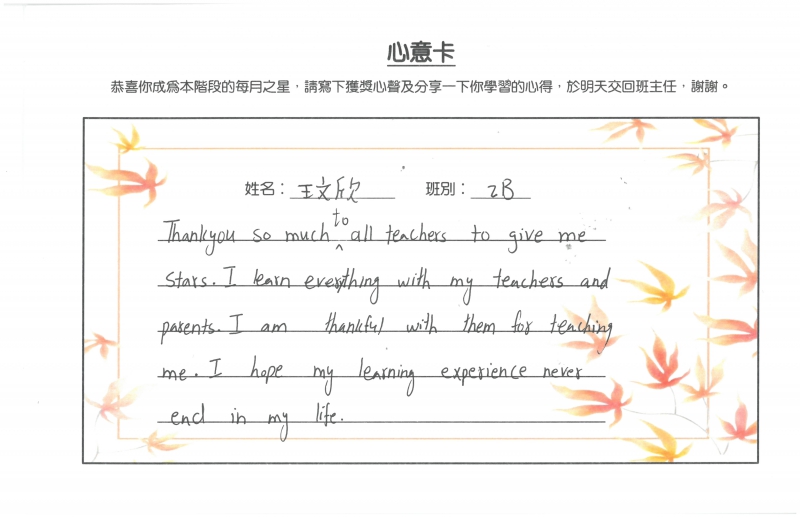 心意卡
恭喜你成為本階段的每月之星，請寫下獲獎心聲及分享一下你學習的心得，於明天交回班主任，謝謝。
姓名：王文欣 班別：2B
Thankyou so much to all teachers to give me
stars. I learn everything with my teachers and
parents. I am thankful with them for teaching
me. I hope my learning experience never
end in my life.